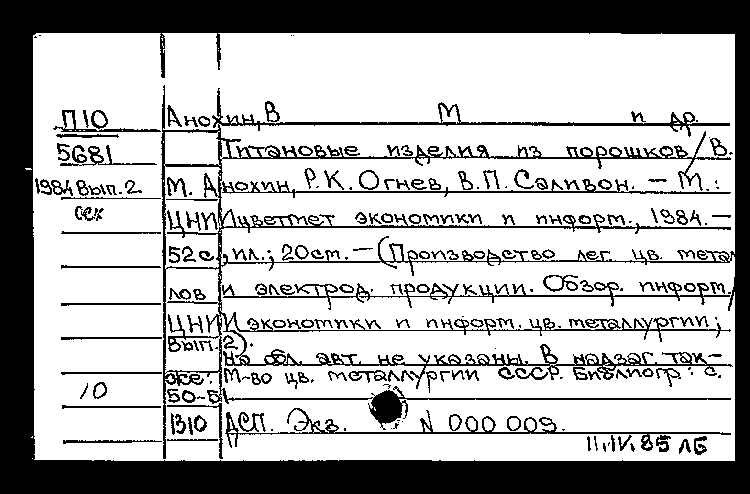 П10 Анохин, В М и др.
5681 Титановые изделия из порошков / В.
1984 Вып. 2 М. Анохин, Р.К. Огнев, В.П. Саливон. – М.:
оск ЦНИИцветмет экономики и информ., 1984. –
52 с., ил.; 20 см. – (Производство лег. цв. метал
лов и электрод. продукции. Обзор. информ. /
ЦНИИ экономики и информ. цв. металлургии;
Вып. 2).
На обл. авт. не указаны. В надзаг. так-
же: М-во цв. металлургии СССР. Библиогр.: с.
10 50-51
1310 ДСП. Экз. N 000 009.
11.IV.85 ЛБ